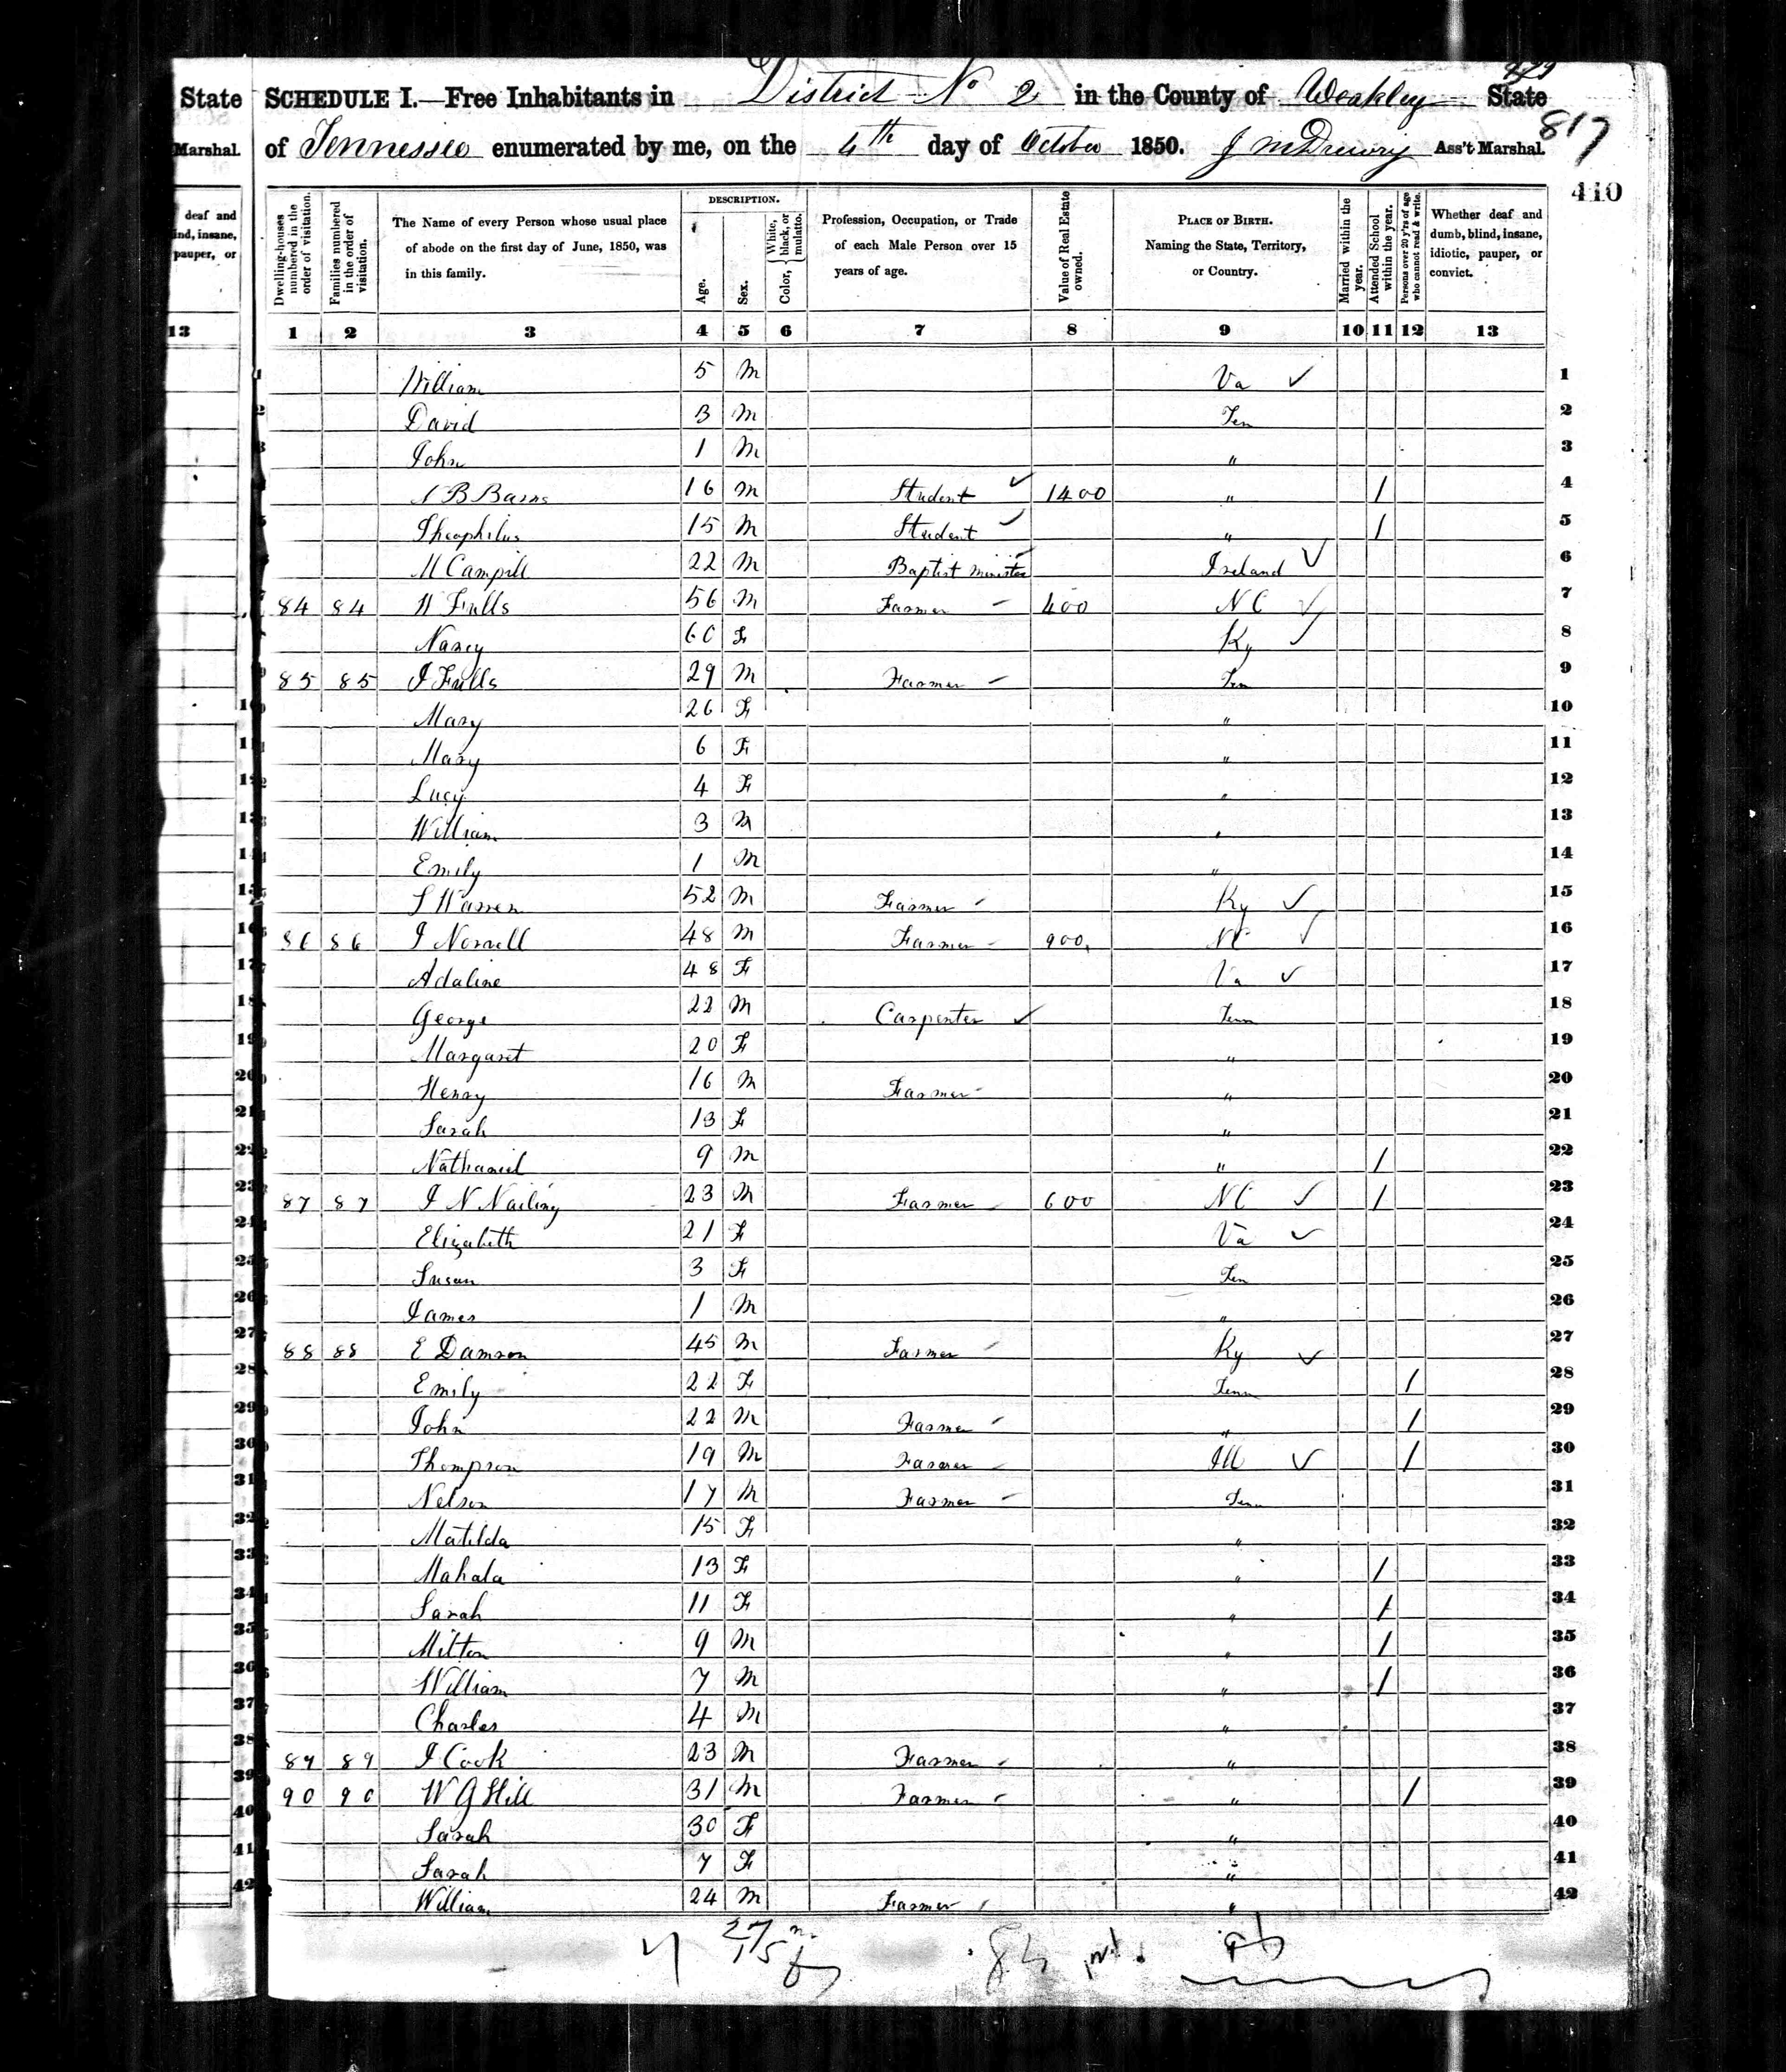 479
State SCHEDULE I.—Free Inhabitants in District No 2 in the County of Weakley State
Marshal. of Tennessee enumerated by me, on the 4th day of October 1850. J M Drewry Ass't Marshal. 817
410
deaf and
ind, insane,
pauper, or
13
Dwelling-houses numbered in the order of visitation.
Families numbered in the order of visitation.
The Name of every Person whose usual place of abode on the first day of June, 1850, was in this family.
DESCRIPTION.
Age.
Sex.
Color, { White, black, or mulatto.
Profession, Occupation, or Trade of each Male Person over 15 years of age.
Value of Real Estate owned.
PLACE OF BIRTH. Naming the State, Territory, or Country.
Married within the year.
Attended School within the year.
Persons over 20 y'rs of age who cannot read & write.
Whether deaf and dumb, blind, insane, idiotic, pauper, or convict.
1 2 3 4 5 6 7 8 9 10 11 12 13
1 William 5 M Va ✓ 1
2 David 3 M Ten 2
3 John 1 M " 3
B Barns 16 M Student ✓ 1400 " / 4
5 Theophilus 15 M Student ✓ " / 5
M Campill 22 M Baptist minister Ireland ✓ 6
84 84 W Falls 56 M Farmer - 400 NC ✓ 7
Nancy 60 F Ky ✓ 8
9 85 85 J Falls 29 M Farmer - Ten 9
10 Mary 26 F " 10
11 Mary 6 F " 11
12 Lucy 4 F " 12
13 William 3 M " 13
14 Emily 1 M " 14
15 S Warren 52 M Farmer - Ky ✓ 15
16 86 86 J Norrell 48 M Farmer - 900 NC ✓ 16
17 Adaline 48 F Va ✓ 17
18 George 22 M Carpenter ✓ Tenn 18
19 Margaret 20 F " 19
20 Henry 16 M Farmer - " 20
21 Sarah 13 F " 21
22 Nathaniel 9 M " / 22
23 87 87 J N Nailing 23 M Farmer - 600 NC ✓ / 23
24 Elizabeth 21 F Va ✓ 24
25 Susan 3 F Ten 25
26 James 1 M " 26
27 88 88 E Damron 45 M Farmer - Ky ✓ 27
28 Emily 22 F Tenn / 28
29 John 22 M Farmer - " / 29
30 Thompson 19 M Farmer - Ill ✓ / 30
31 Nelson 17 M Farmer - Tenn 31
32 Matilda 15 F " 32
33 Mahala 13 F " / 33
34 Sarah 11 F " / 34
35 Milton 9 M " / 35
36 William 7 M " / 36
37 Charles 4 M " 37
38 89 89 J Cook 23 M Farmer - " 38
39 90 90 W G Hill 31 M Farmer - " / 39
40 Sarah 30 F " 40
41 Sarah 7 F " 41
42 William 24 M Farmer - " 42
27 m.
15 f